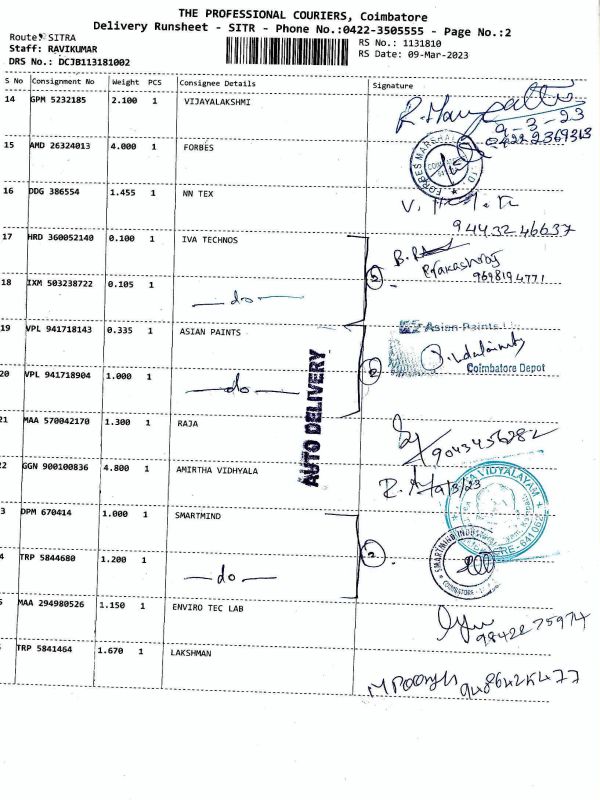 THE PROFESSIONAL COURIERS, Coimbatore
Delivery Runsheet - SITR - Phone No.:0422-3505555 - Page No.:2
Route: SITRA
Staff: RAVIKUMAR
DRS No.: DCJB113181002
RS No.: 1131810
RS Date: 09-Mar-2023
S No Consignment No Weight PCS Consignee Details Signature
14 GPM 5232185 2.100 1 VIJAYALAKSHMI
9-3-23
15 AMD 26324013 4.000 1 FORBES
FORBES MARSHALL
16 DDG 386554 1.455 1 NN TEX
94432 46637
17 HRD 360052140 0.100 1 IVA TECHNOS
Prakashraj
9698194771
18 IXM 503238722 0.105 1 —do— 2
19 VPL 941718143 0.335 1 ASIAN PAINTS
Asian Paints
20 VPL 941718904 1.000 1 —do— 2
Coimbatore Depot
AUTO DELIVERY
21 MAA 570042170 1.300 1 RAJA
9043456282
22 GGN 900100836 4.800 1 AMIRTHA VIDHYALA
9/3/23
VIDYALAYAM
3 DPM 670414 1.000 1 SMARTMIND
SMARTMIND
COIMBATORE
4 TRP 5844680 1.200 1 —do— 2
MAA 294980526 1.150 1 ENVIRO TEC LAB
98422 75974
TRP 5841464 1.670 1 LAKSHMAN